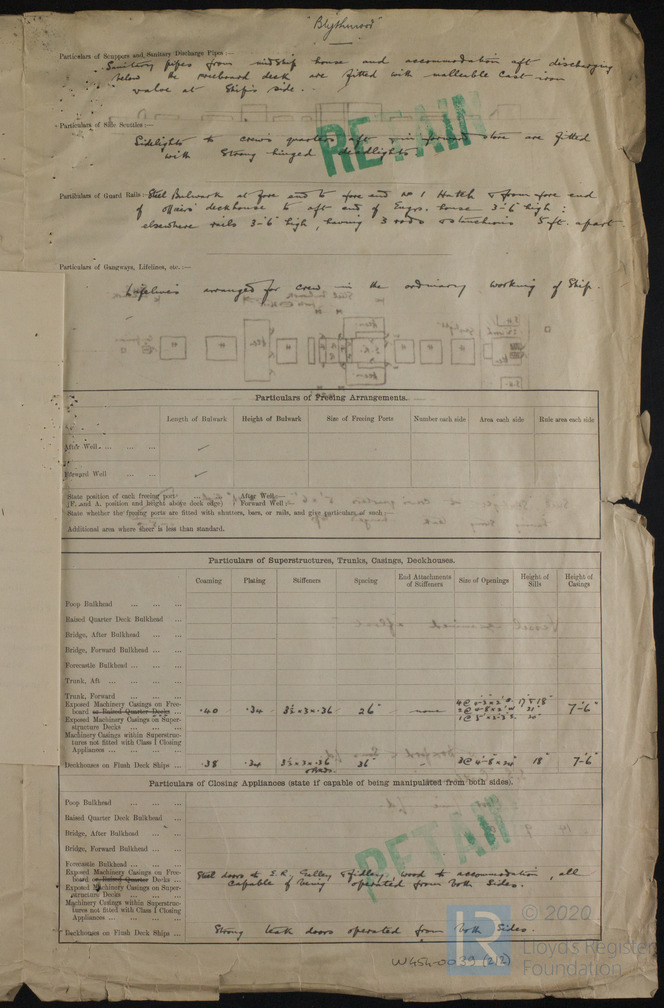 "Blythmoor"
Particulars of Scuppers and Sanitary Discharge Pipes :—
Sanitary pipes from midship house and accommodation aft discharging
below the freeboard deck are fitted with malleable cast iron
valve at Ship's side.
Particulars of Side Scuttles :—
Sidelights to crew's quarters aft store are fitted
with Strong hinged deadlights
RETAIN
Particulars of Guard Rails :— Steel Bulwark at fore end to fore end No 1 Hatch & from fore end
of officers' deckhouse to aft end of Engrs. house 3'-6" high :
elsewhere rails 3'-6" high, having 3 rods & stanchions 5 ft. apart
Particulars of Gangways, Lifelines, etc. :—
Lifelines arranged for crew in the ordinary working of Ship.
Particulars of Freeing Arrangements.
Length of Bulwark Height of Bulwark Size of Freeing Ports Number each side Area each side Rule area each side
After Well ... ... ...
Forward Well ... ...
State position of each freeing port ... After Well :—
(F. and A. position and height above deck edge) Forward Well :—
State whether the freeing ports are fitted with shutters, bars, or rails, and give particulars as such :—
Additional area where sheer is less than standard.
Particulars of Superstructures, Trunks, Casings, Deckhouses.
Coaming Plating Stiffeners Spacing End Attachments of Stiffeners Size of Openings Height of Sills Height of Casings
Poop Bulkhead ... ... ...
Raised Quarter Deck Bulkhead ...
Bridge, After Bulkhead ... ...
Bridge, Forward Bulkhead ... ...
Forecastle Bulkhead ... ... ...
Trunk, Aft ... ... ... ...
Trunk, Forward ... ... ...
Exposed Machinery Casings on Free-
board or Raised Quarter Decks ... .40 .34 3½ × 3 × .36 26" none 7'-6"
Exposed Machinery Casings on Super-
structure Decks ... ... ...
Machinery Casings within Superstruc-
tures not fitted with Class I Closing
Appliances ... ... ... ...
Deckhouses on Flush Deck Ships ... .38 .34 3½ × 3 × .36 36" 18" 7'-6"
Particulars of Closing Appliances (state if capable of being manipulated from both sides).
Poop Bulkhead ... ... ...
Raised Quarter Deck Bulkhead ...
Bridge, After Bulkhead ... ...
Bridge, Forward Bulkhead ... ...
Forecastle Bulkhead ... ... ...
Exposed Machinery Casings on Free-
board or Raised Quarter Decks ... Steel doors to E.R., Galley & Fidley, wood to accommodation, all
capable of being operated from both sides.
Exposed Machinery Casings on Super-
structure Decks ... ... ...
Machinery Casings within Superstruc-
tures not fitted with Class I Closing
Appliances ... ... ... ...
Deckhouses on Flush Deck Ships ... Strong teak doors operated from both Sides.
RETAIN
W454-0029 (2/2)
LR
© 2020
Lloyd's Register
Foundation